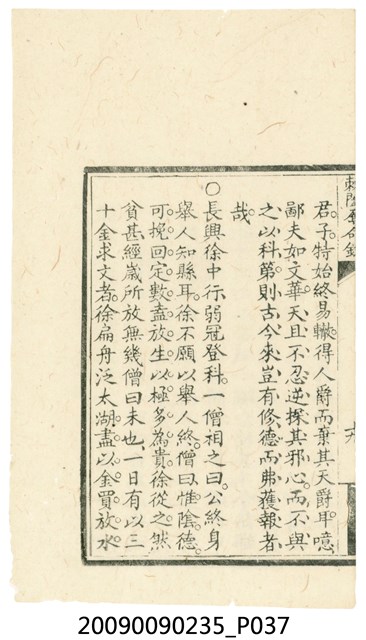 君子特始終易轍得人爵而棄其天爵耳噫
鄙夫如文華天且不忍逆探其邪心而不與
之以科第則古今來豈有修德而弗獲報者
哉
○長興徐中行弱冠登科一僧相之曰公終身
舉人知縣耳徐不願以舉人終僧曰惟陰德
可挽回定數盍放生以極多為貴徐從之然
貧甚經歲所放無幾僧曰未也一日有以三
十金求文者徐扁舟泛太湖盡以金買放水
20090090235_P037